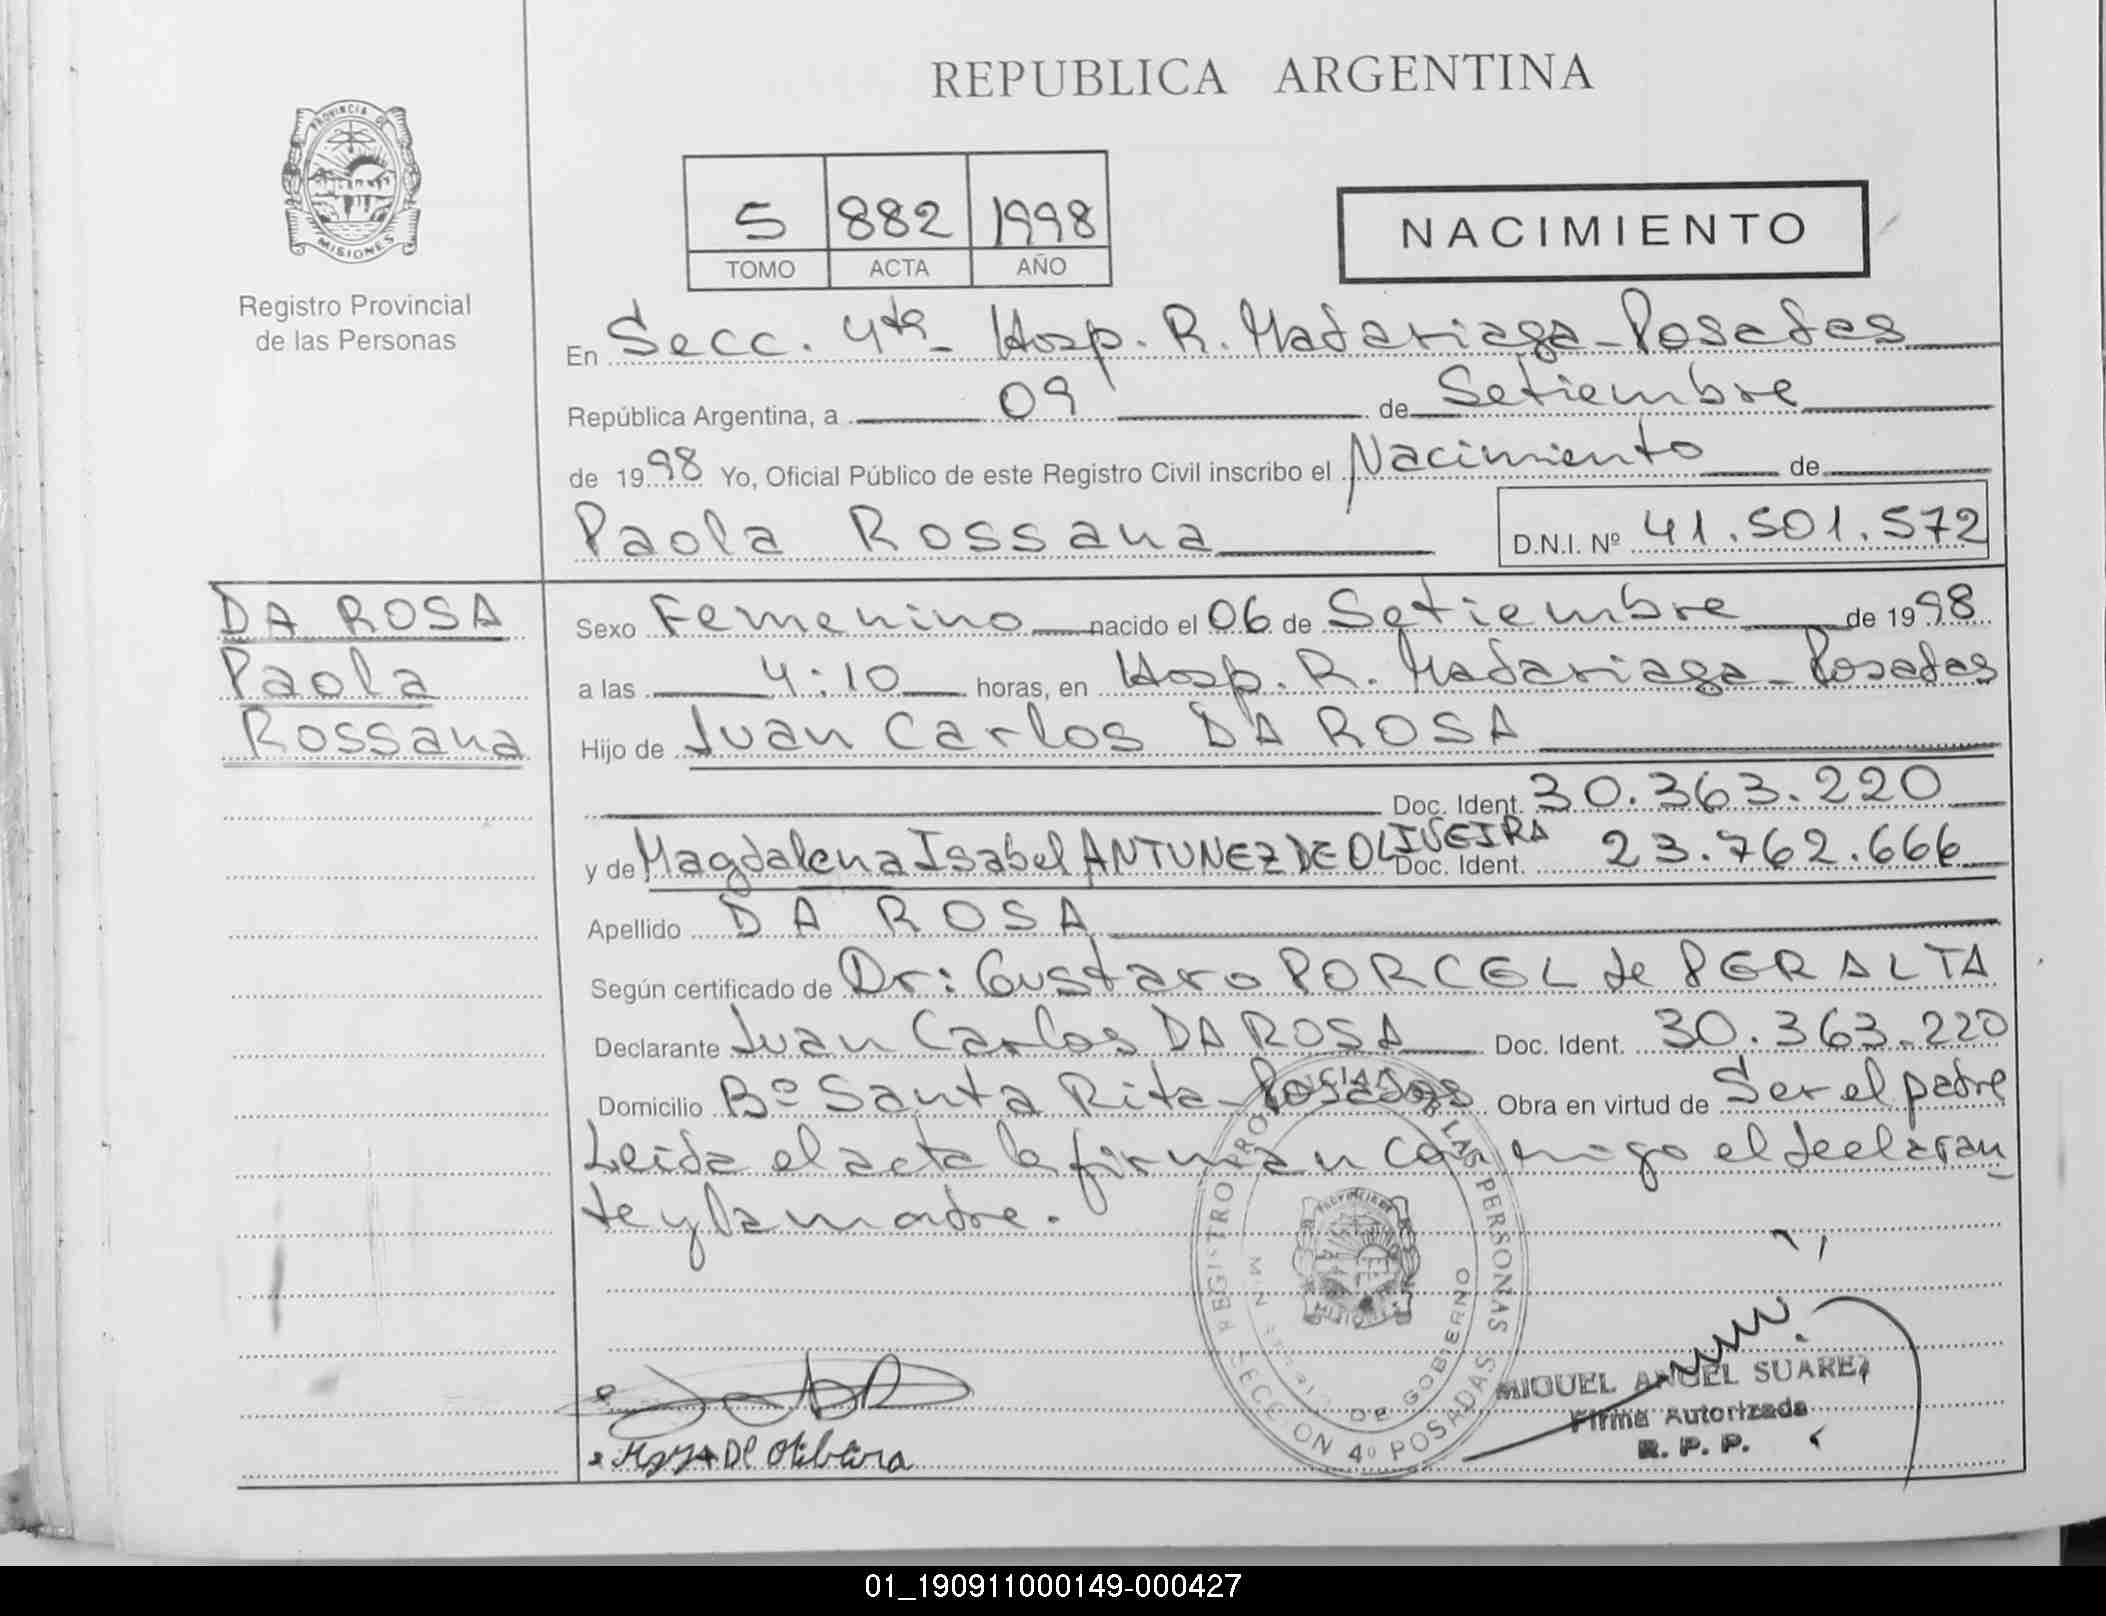 REPUBLICA ARGENTINA
PROVINCIA DE
MISIONES
Registro Provincial
de las Personas
5 882 1998
TOMO ACTA AÑO
NACIMIENTO
En Secc. 4ta - Hosp. R. Madariaga - Posadas
República Argentina, a 09 de Setiembre
de 1998 Yo, Oficial Público de este Registro Civil inscribo el Nacimiento de
Paola Rossana D.N.I. Nº 41.501.572
DA ROSA
Paola
Rossana
Sexo Femenino nacido el 06 de Setiembre de 1998
a las 4:10 horas, en Hosp. R. Madariaga - Posadas
Hijo de Juan Carlos DA ROSA
Doc. Ident. 30.363.220
y de Magdalena Isabel ANTUNEZ DE OLIVEIRA Doc. Ident. 23.762.666
Apellido DA ROSA
Según certificado de Dr: Gustavo PORCEL de PERALTA
Declarante Juan Carlos DA ROSA Doc. Ident. 30.363.220
Domicilio Bº Santa Rita - Posadas Obra en virtud de Ser el padre
Leida el acta la firman conmigo el declaran
te y la madre.
REGISTRO PROVINCIAL DE LAS PERSONAS
SECCION 4º POSADAS
DE GOBIERNO
MISIONES
MIGUEL ANGEL SUAREZ
Firma Autorizada
R. P. P.
01_190911000149-000427